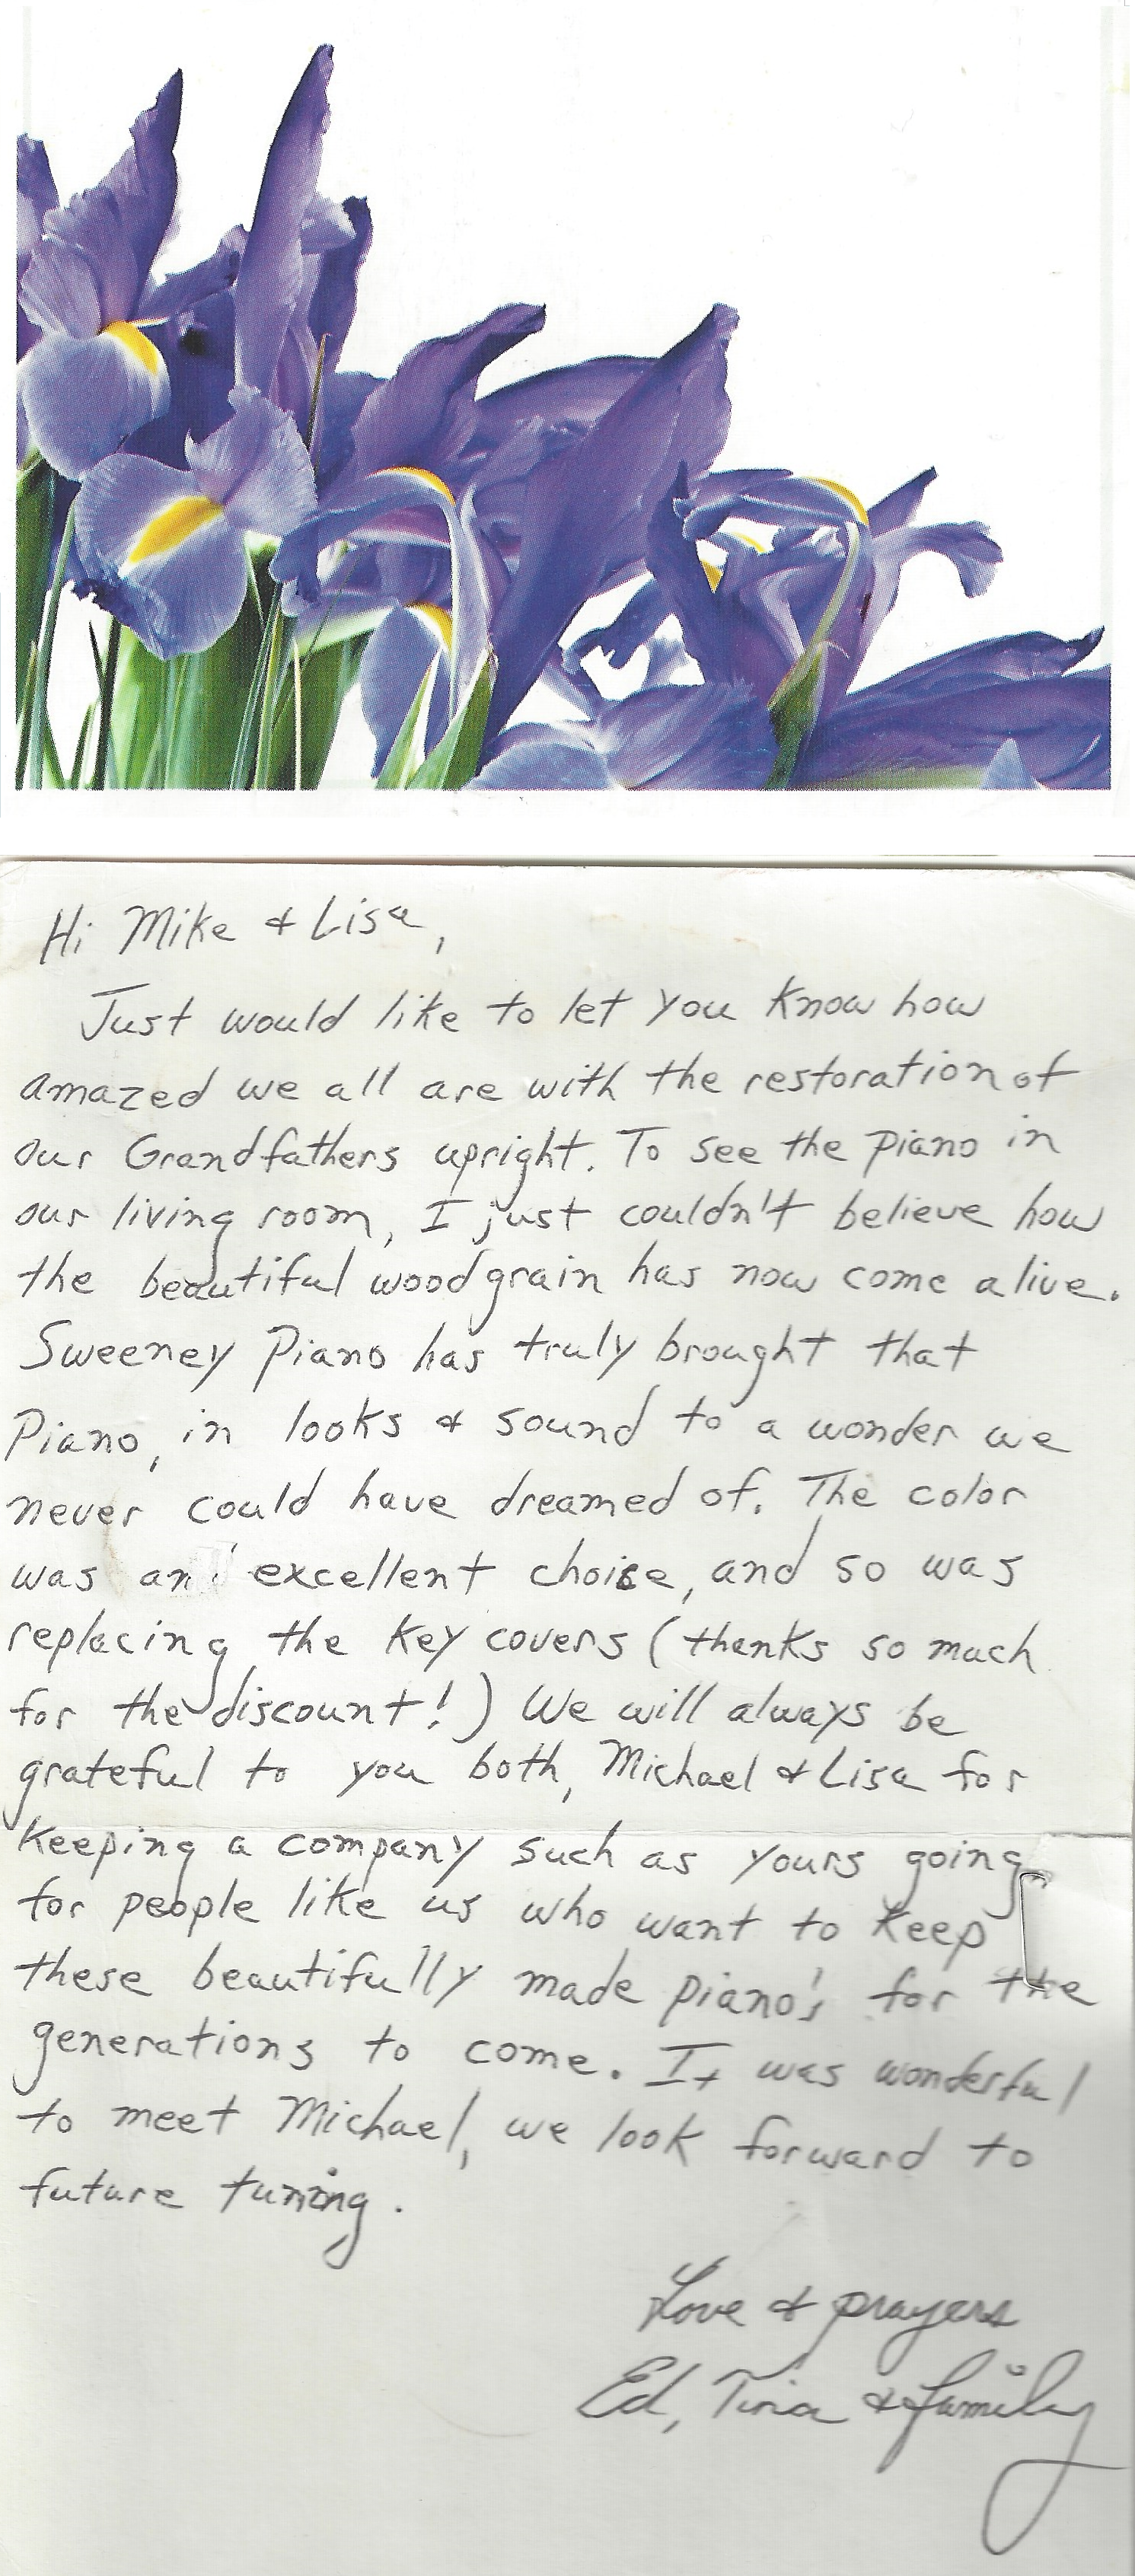 Hi Mike & Lisa,
Just would like to let you know how
amazed we all are with the restoration of
our Grandfathers upright. To see the piano in
our living room, I just couldn't believe how
the beautiful woodgrain has now come alive.
Sweeney Piano has truly brought that
Piano, in looks & sound to a wonder we
never could have dreamed of. The color
was an excellent choice, and so was
replacing the key covers (thanks so much
for the discount!) We will always be
grateful to you both, Michael & Lisa for
keeping a company such as yours going
for people like us who want to keep
these beautifully made piano's for the
generations to come. It was wonderful
to meet Michael, we look forward to
future tuning.
Love & prayers
Ed, Tina & family